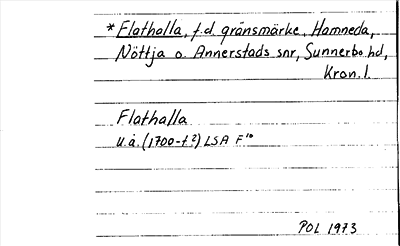 * Flathalla, f.d. gränsmärke, Hamneda,
Nöttja o. Annerstads snr, Sunnerbo hd,
Kron. l.
Flathalla
u.å. (1700-t?) LSA F¹⁰
POL 1973